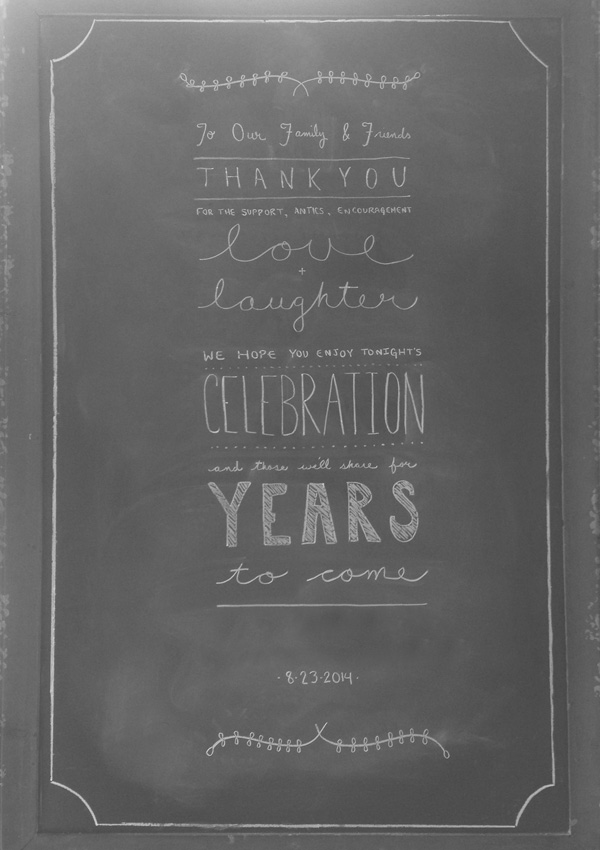 To Our Family & Friends
THANK YOU
FOR THE SUPPORT, ANTICS, ENCOURAGEMENT
love
+
laughter
WE HOPE YOU ENJOY TONIGHT'S
CELEBRATION
and those we'll share for
YEARS
to come
·8·23·2014·